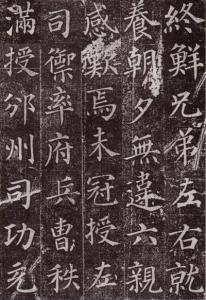 終鮮兄弟左右就
養朝夕無違六親
感歎焉未冠授左
司禦率府兵曹秩
滿授邠州司功充